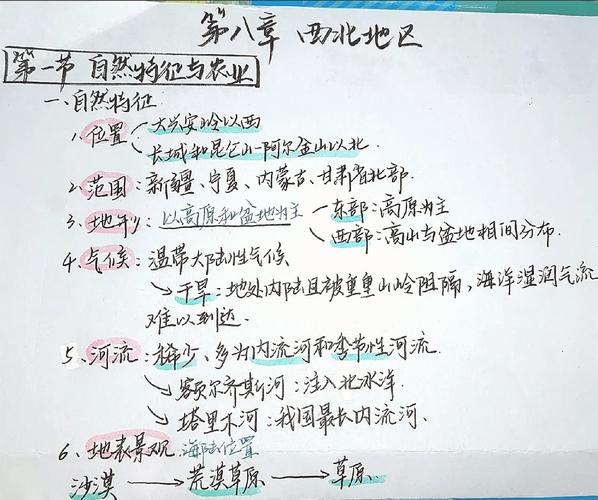 第八章 西北地区
第一节 自然特征与农业
一、自然特征
1、位置 大兴安岭以西
长城和昆仑山-阿尔金山以北.
2、范围:新疆、宁夏、内蒙古、甘肃省北部.
3、地形:以高原和盆地为主 东部:高原为主
西部:高山与盆地相间分布.
4、气候:温带大陆性气候
→干旱:地处内陆且被重重山岭阻隔,海洋湿润气流
难以到达.
5、河流:稀少、多为内流河和季节性河流.
→额尔齐斯河:注入北冰洋.
→塔里木河:我国最长内流河、
6、地表景观 海陆位置
沙漠 → 荒漠草原 → 草原.